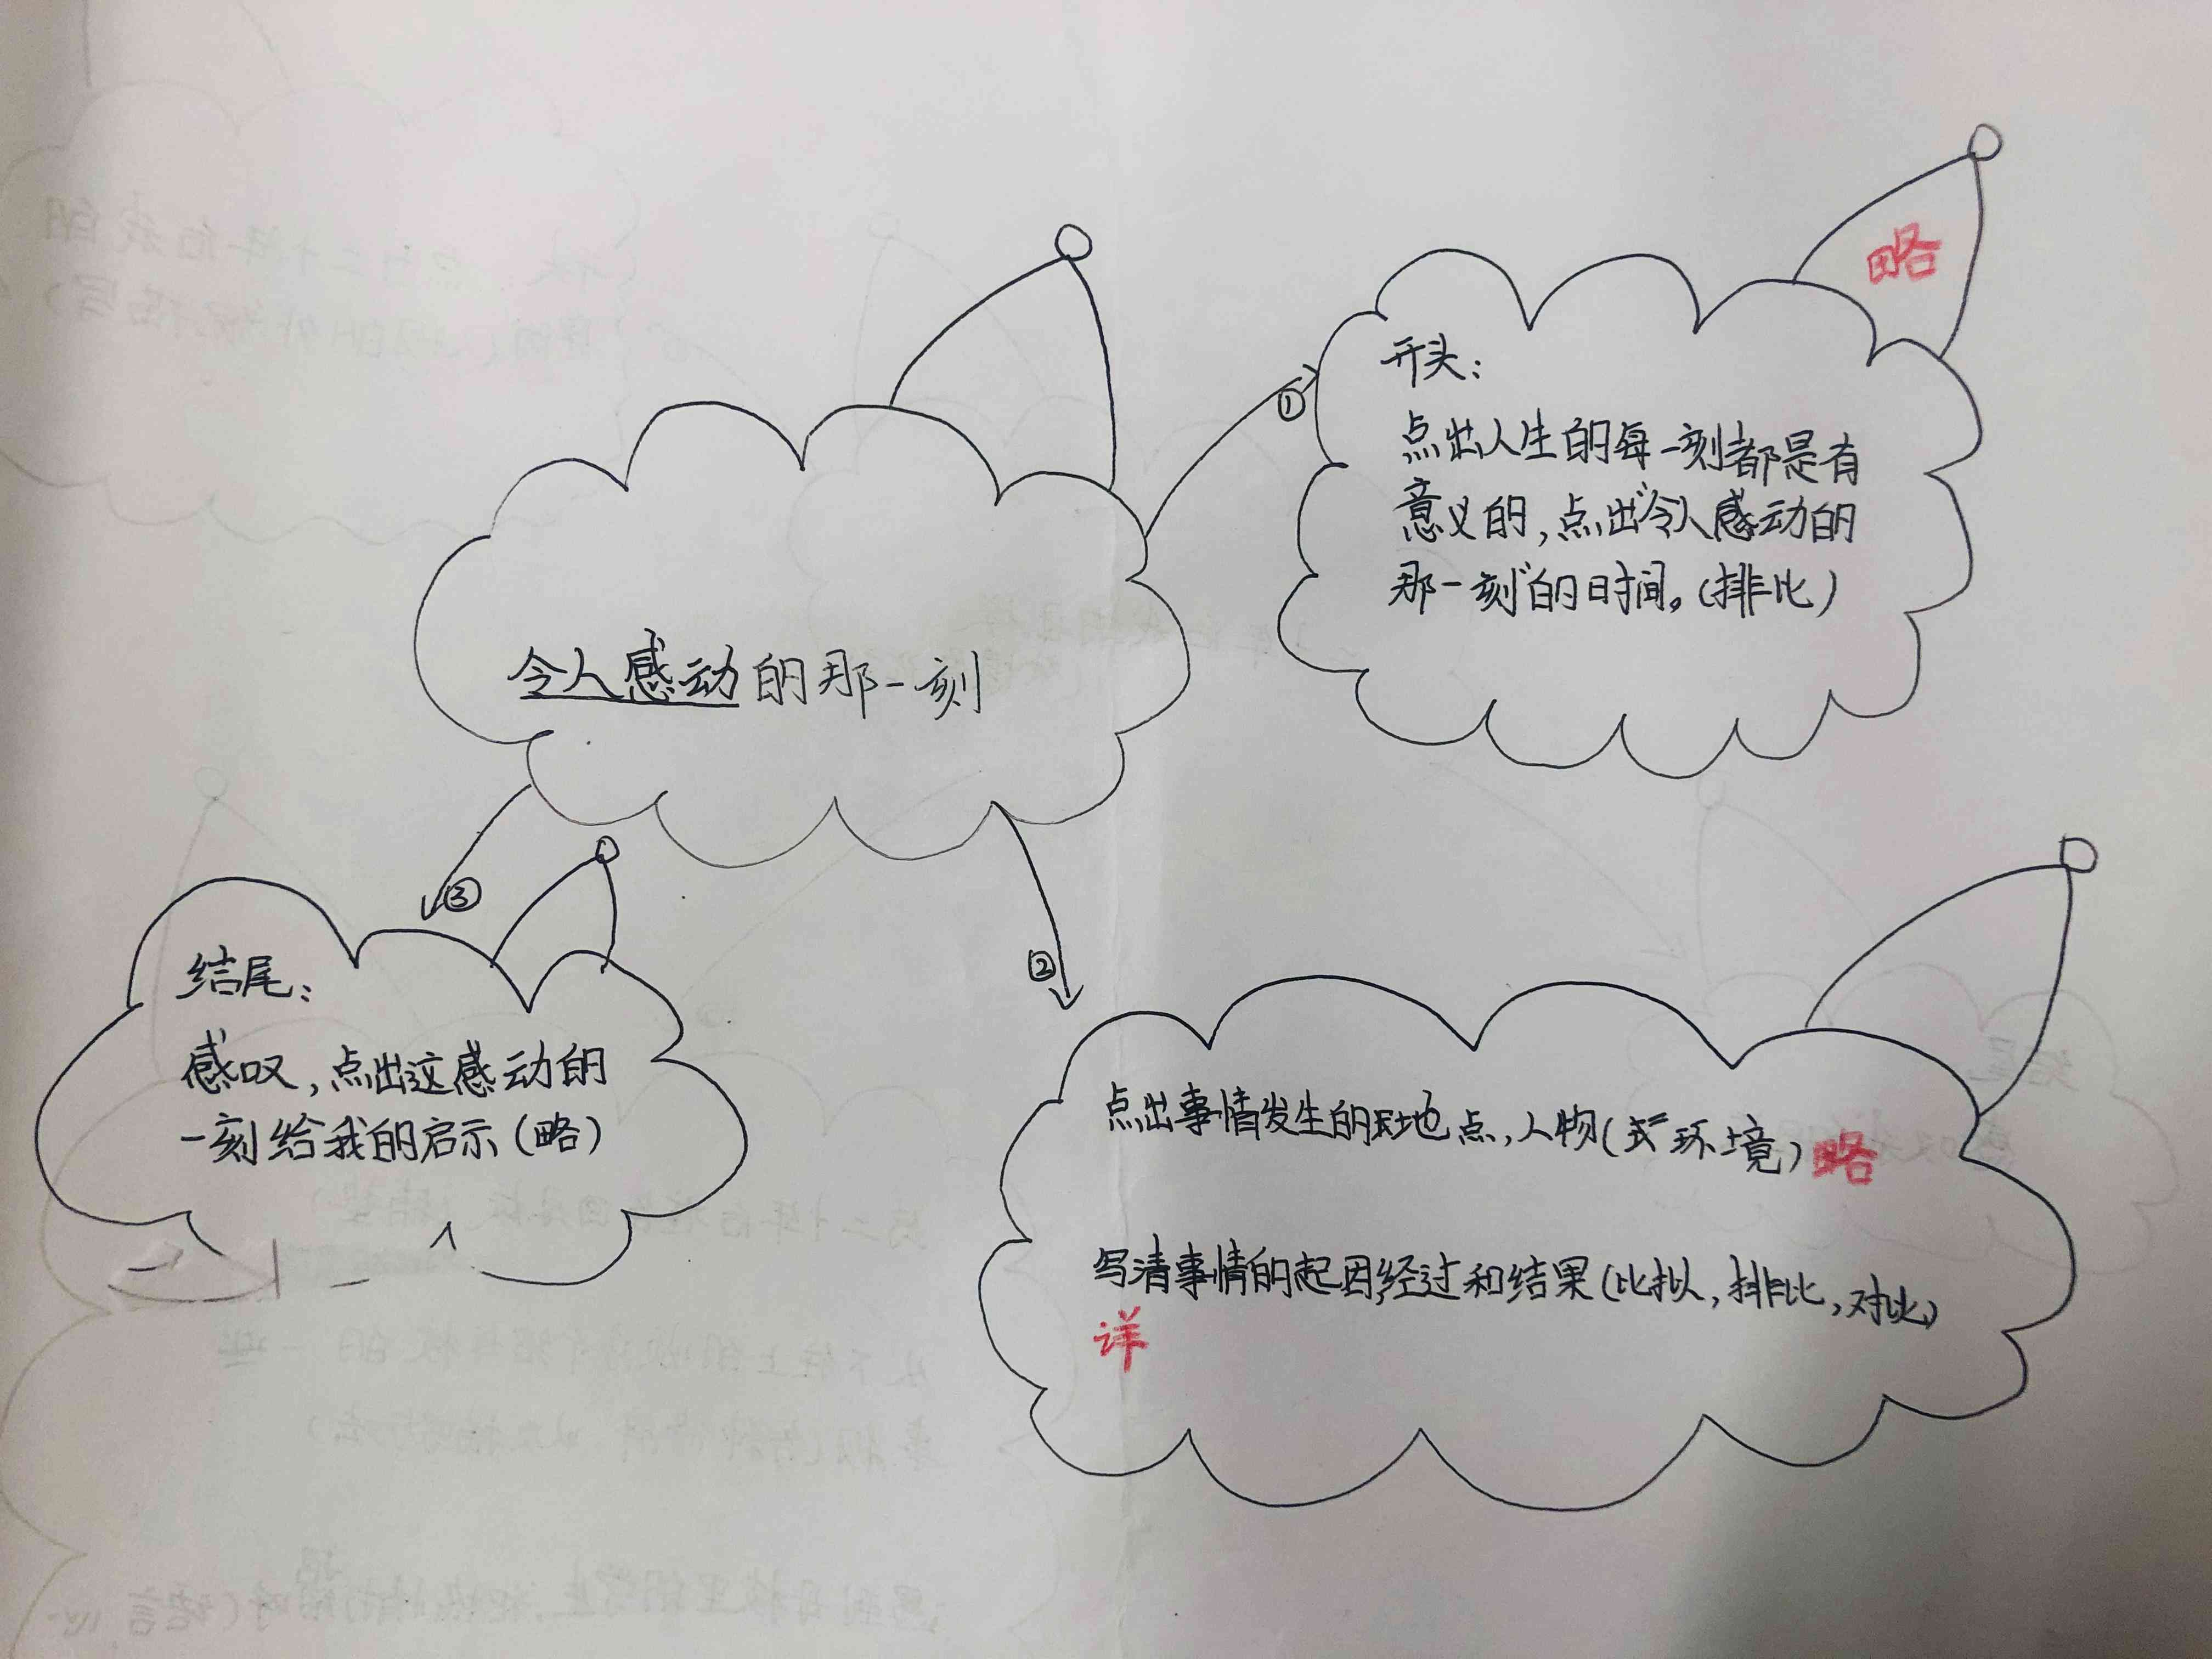 令人感动的那一刻
①
开头:
略
点出人生的每一刻都是有
意义的,点出“令人感动的
那一刻”的日时间。(排比)
②
点出事情发生的地点,人物(式环境)略
写清事情的起因经过和结果(比拟,排比,对比)
详
③
结尾:
感叹,点出这感动的
一刻给我的启示(略)